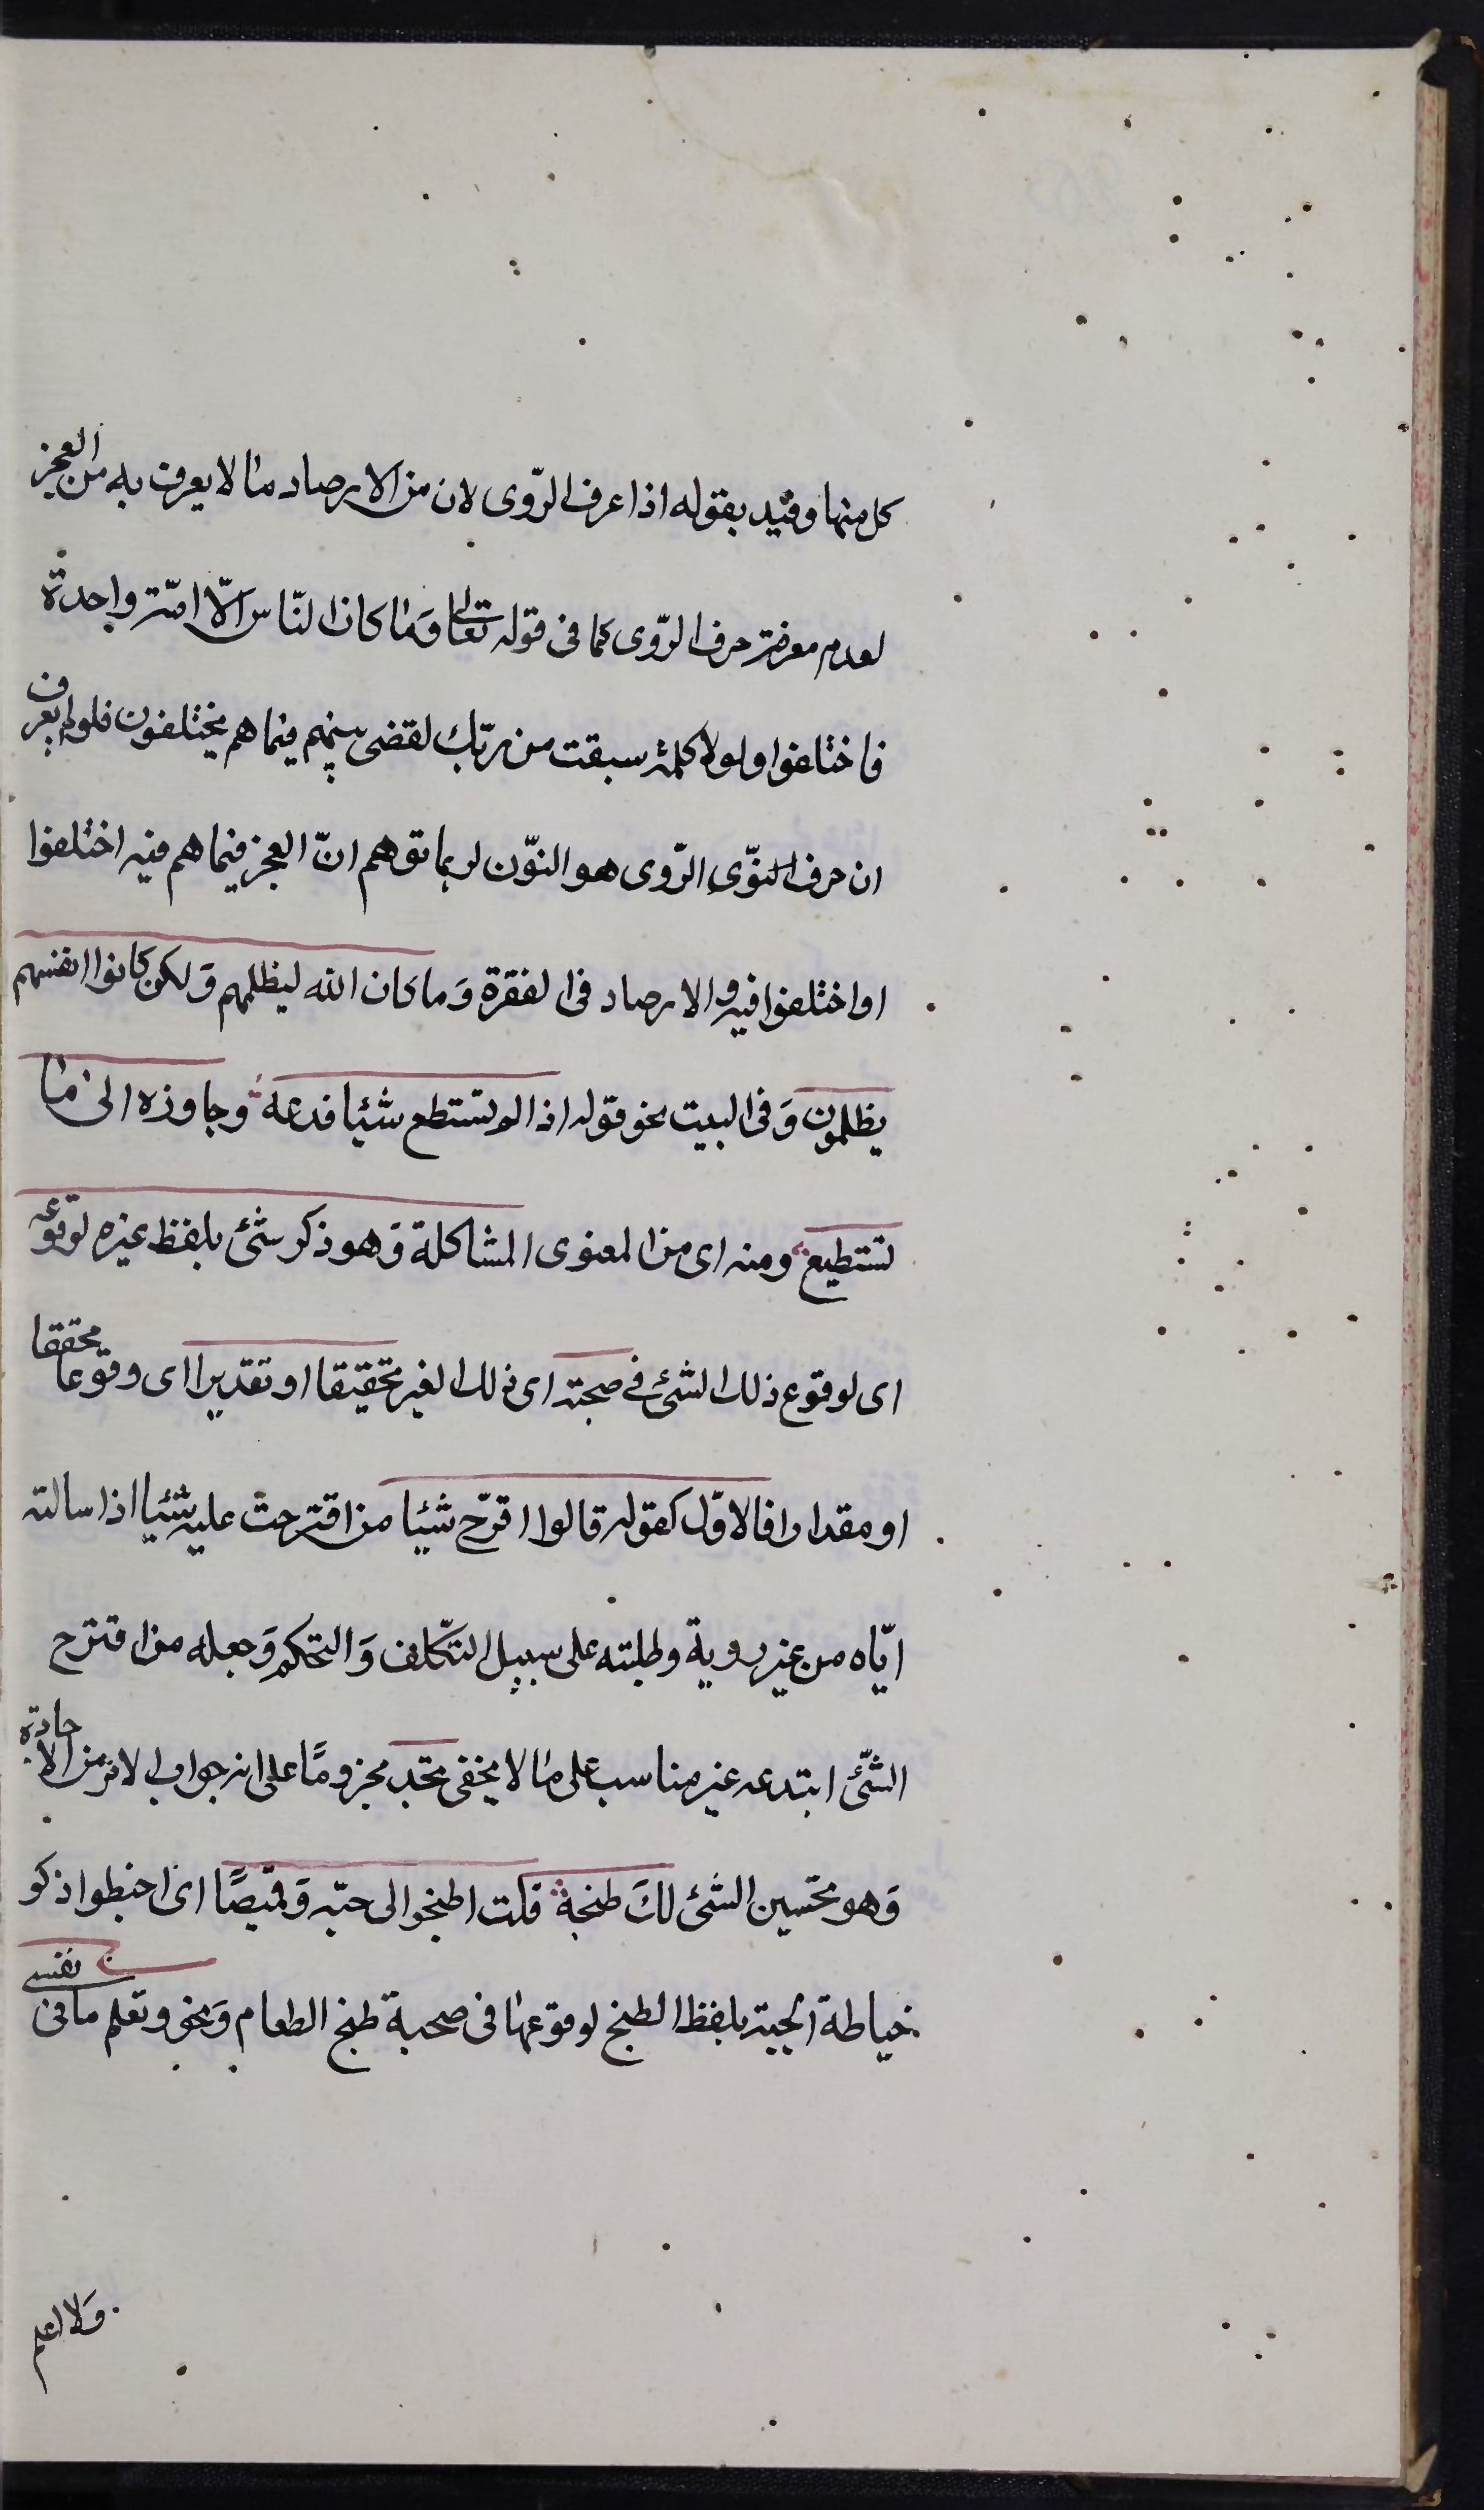 كل منها وقيد بقوله اذا عرف الرّوى لان من الارصاد ما لا يعرف به من العجز
لعدم معرفة حرف الرّوى كما فى قوله تعالى وَما كان النّاس الّا امّة واحدة
فاختلفوا ولولا كلمة سبقت من ربّك لقضى بينهم فيما هم يختلفون فلولم يعرف
ان حرف الرّوى هو النّون لربما توهم انّ العجز فيما هم فيه اختلفوا
او اختلفوا فيه والارصاد فى الفقرة وَما كان الله ليظلمهم وَلكن كانوا انفسهم
يظلمون وَفى البيت نحو قوله اذا لم تستطع شيئا فدعه وجاوزه الى ما
تستطيع ومنه اى من المعنوى المشاكلة وَهو ذكر شئ بلفظ غيره لوقوعه
اى لوقوع ذلك الشئ فى صحبته اى ذلك الغير تحقيقا او تقديرا اى وقوعا محققا
او مقدارا فالاوّل كقوله قالوا اقترّح شيئا من اقترحت عليه شيئا اذا سالته
ايّاه من غير روية وطلبته على سبيل التكّلف وَالتحكم وَجعله من اقترح
الشّئ ابتدعه غير مناسب على ما لا يخفى نجد مجزومًا على انه جواب الامر من الاجادة
وَهو تحسين الشئ لكَ طبخة قلت اطبخوا لى جبّه وَقميصًا اى اخيطوا ذكر
خياطة الجبة بلفظ الطبخ لوقوعها فى صحبة طبخ الطعام وَنحو وتعلم ما فى نفسى
وَلا اعلم